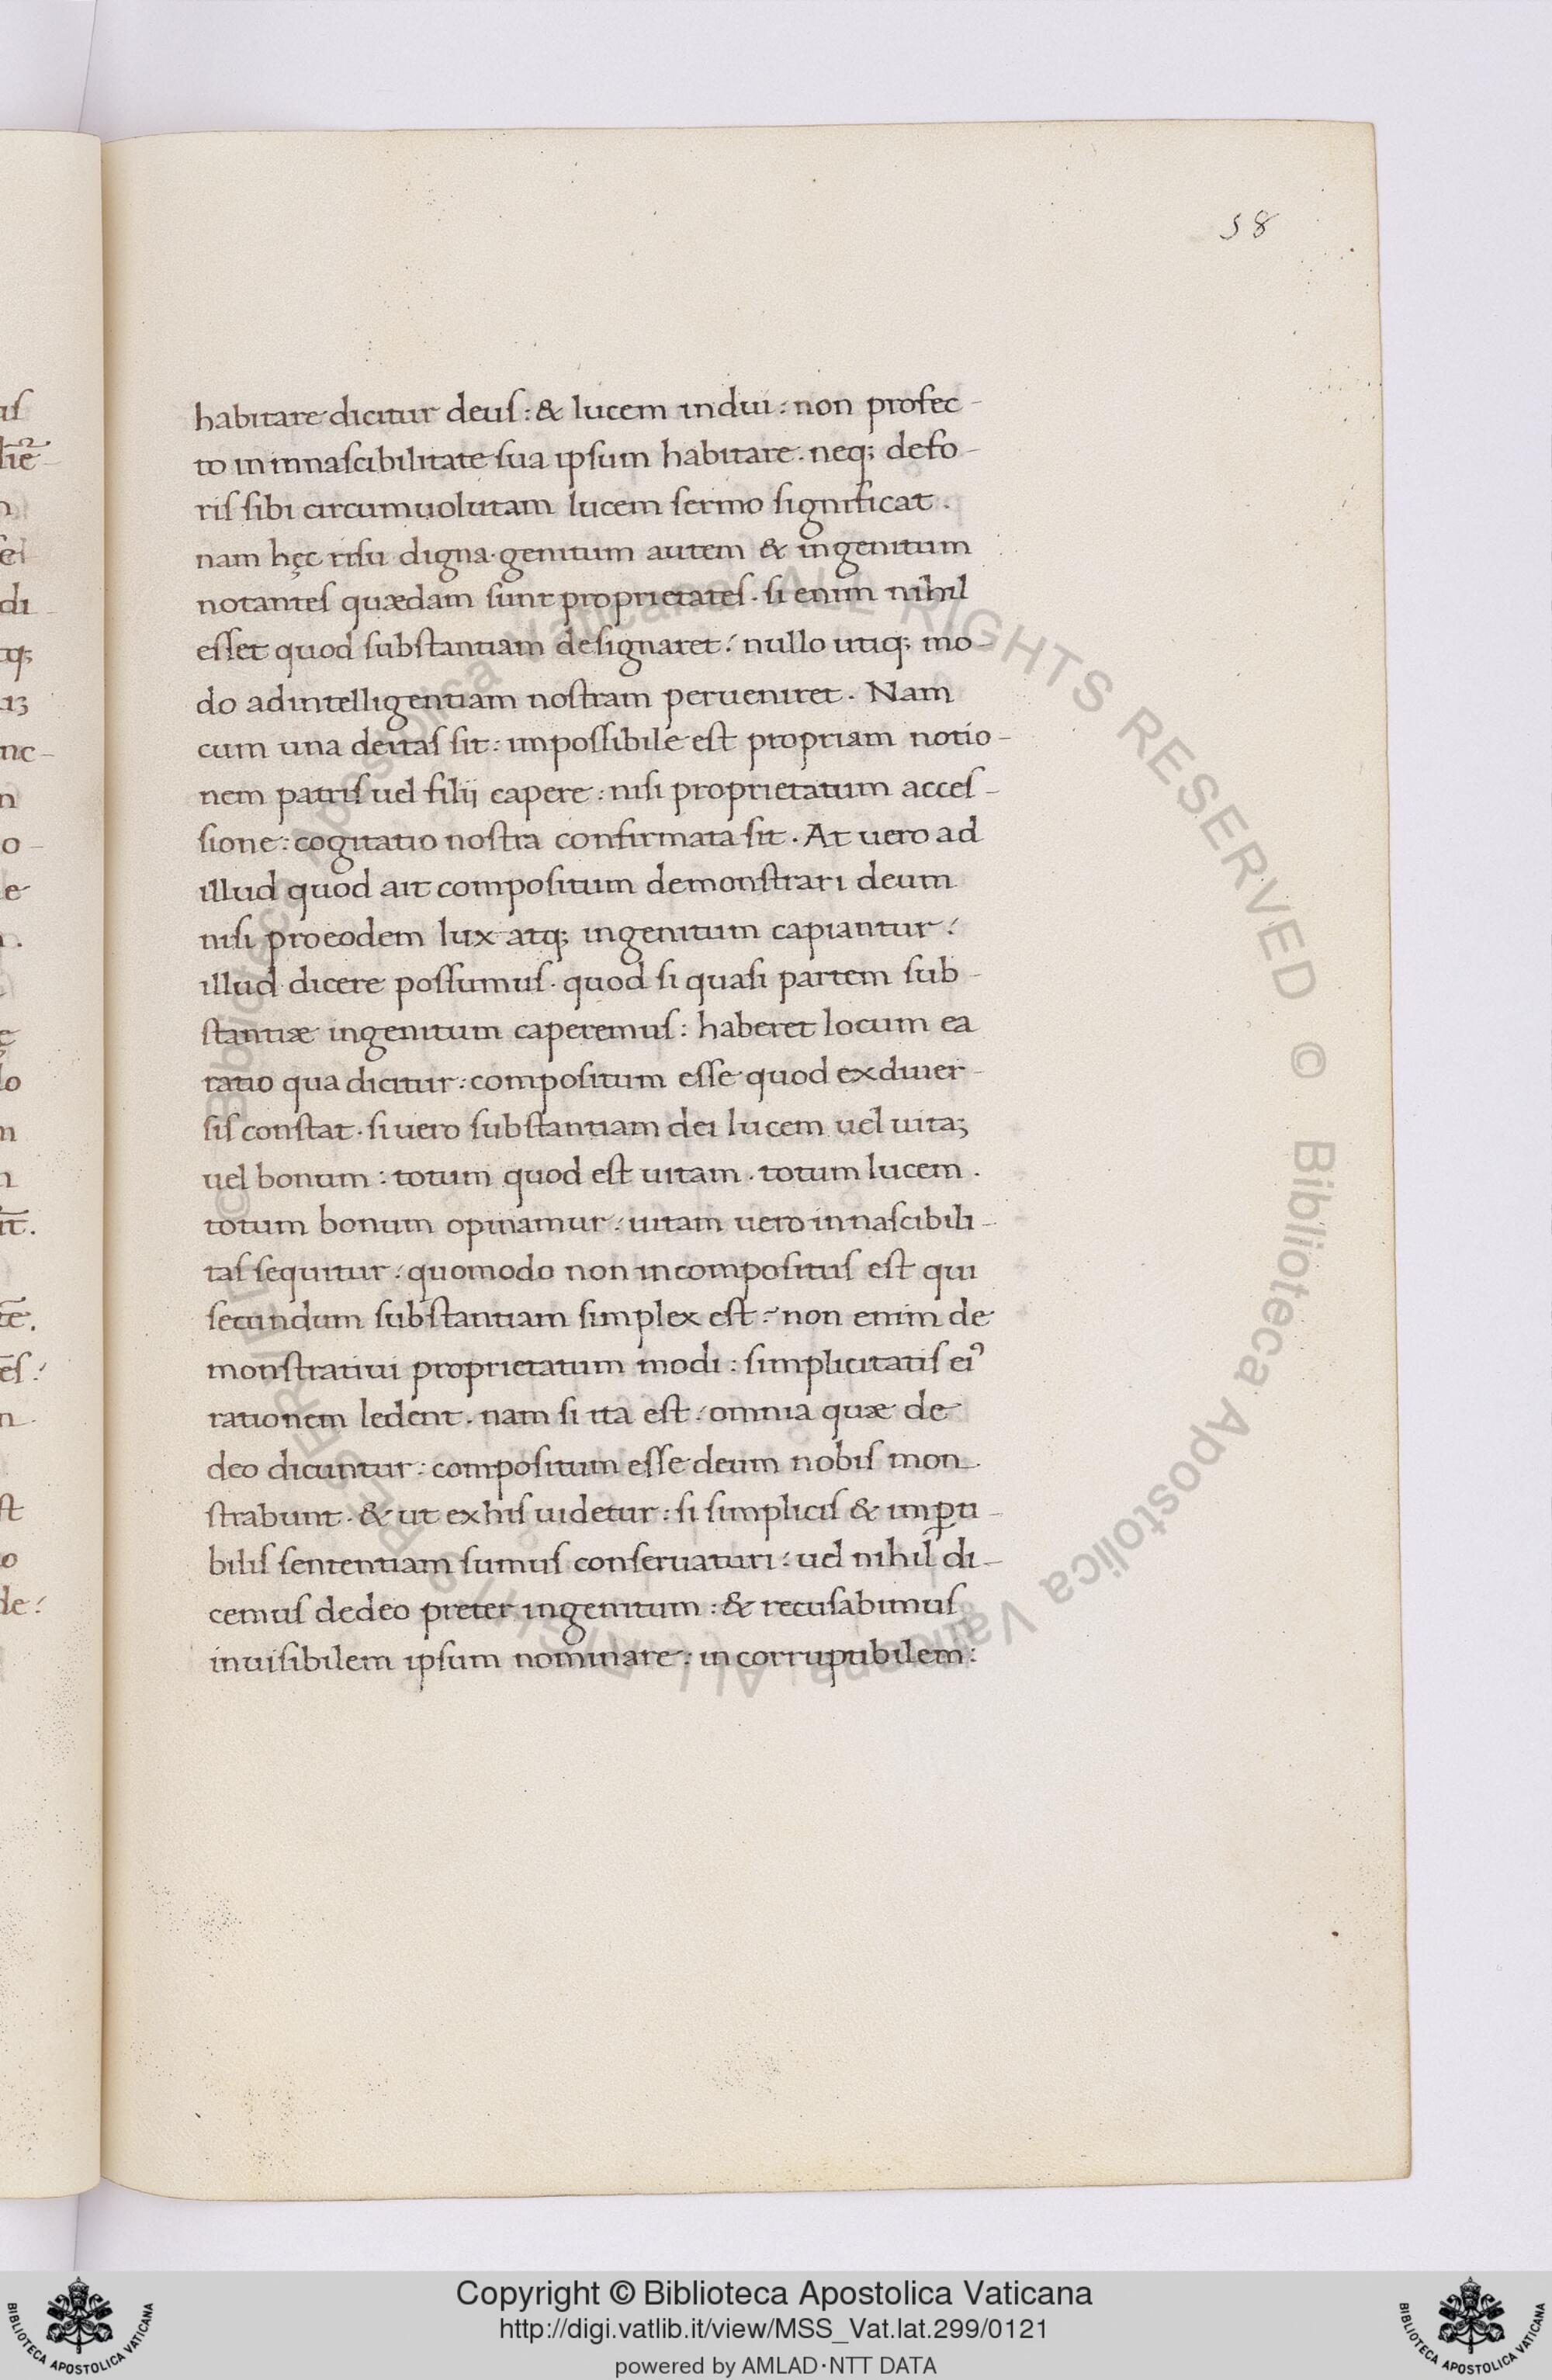 58
habitare dicitur deuſ : & lucem indui : non profec-
to in innaſcibilitate ſua ipſum habitare . neq; defo-
riſ ſibi circumuolutam lucem ſermo ſignificat .
nam hęc riſu digna · genitum autem & ingenitum
notanteſ quædam ſunt proprietateſ . ſi enim nihil
eſſet quod ſubſtantiam deſignaret : nullo utiq; mo-
do ad intelligentiam noſtram perueniret . Nam
cum una deitaſ ſit : impoſſibile eſt propriam notio-
nem patriſ uel filij capere : niſi proprietatum acceſ-
ſione : cogitatio noſtra confirmata ſit . At uero ad
illud quod ait compoſitum demonſtrari deum
niſi pro eodem lux atq; ingenitum capiantur :
illud dicere poſſumuſ . quod ſi quaſi partem ſub-
ſtantiæ ingenitum caperemuſ : haberet locum ea
ratio qua dicitur : compoſitum eſſe quod ex diuer-
ſiſ conſtat . ſi uero ſubſtantiam dei lucem uel uitaʒ
uel bonum : totum quod eſt uitam . totum lucem .
totum bonum opinamur : uitam uero innaſcibili-
taſ ſequitur : quomodo non incompoſituſ eſt qui
ſecundum ſubſtantiam ſimplex eſt : non enim de
monſtratiui proprietatum modi : ſimplicitatiſ eiꝰ
rationem ledent . nam ſi ita eſt : omnia quæ de
deo dicuntur : compoſitum eſſe deum nobiſ mon-
ſtrabunt . & ut ex hiſ uidetur : ſi ſimpliciſ & imꝑti-
biliſ ſententiam ſumuſ conſeruaturi : uel nihil di-
cemuſ de deo preter ingenitum : & recuſabimuſ
inuiſibilem ipſum nominare : incorruptibilem :
Copyright © Biblioteca Apostolica Vaticana
http://digi.vatlib.it/view/MSS_Vat.lat.299/0121
powered by AMLAD·NTT DATA